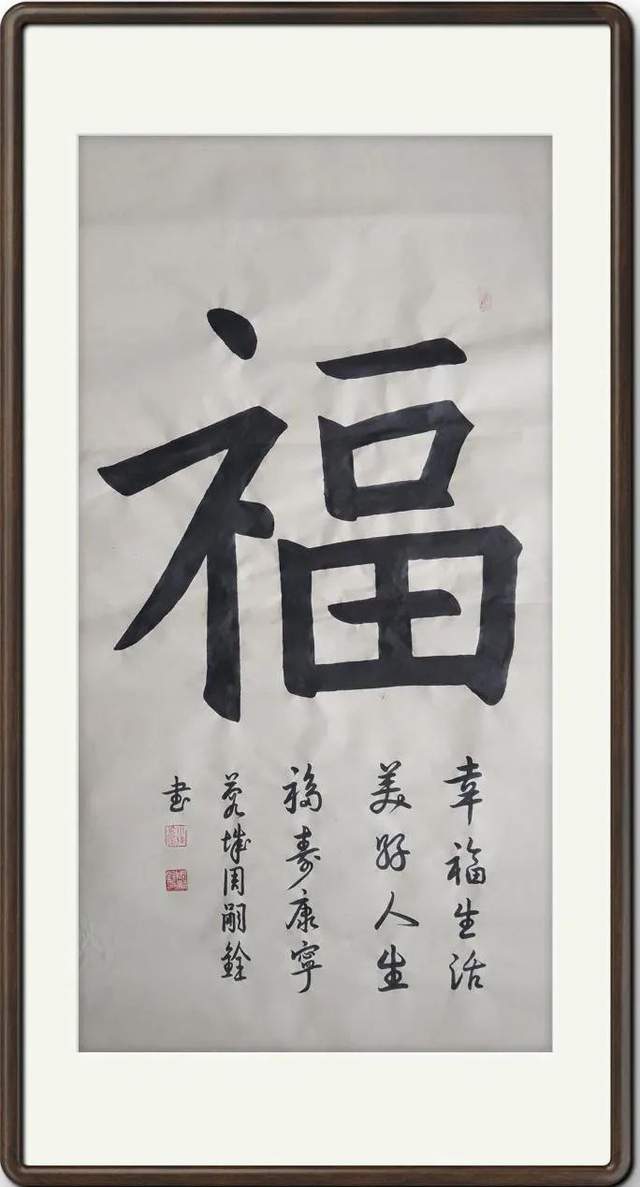 福
幸福生活
美好人生
福寿康宁
蓉城周嗣銓
书